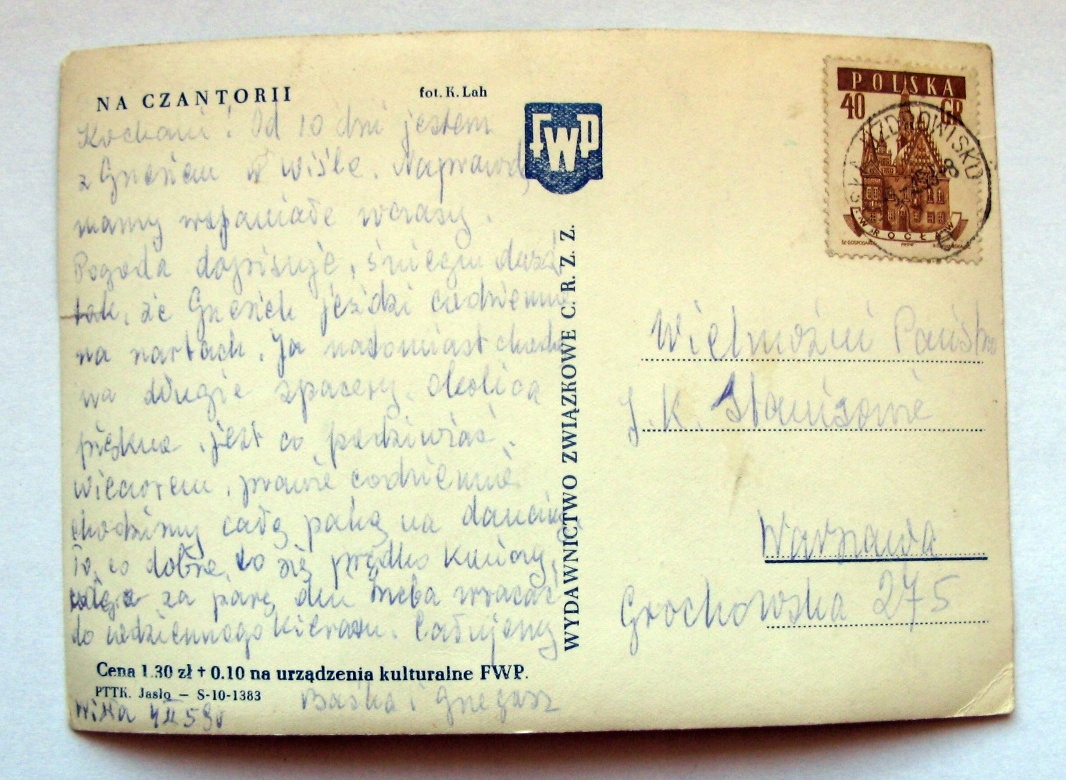 NA CZANTORII
fot. K. Lah
Kochani! Od 10 dni jestem
z Grzesiem w Wiśle. Naprawdę
mamy wspaniałe wczasy.
Pogoda dopisuje, śniegu dużo
tak, że Grzesiek jeździ codziennie
na nartach. Ja natomiast chodzę
na długie spacery. Okolica
piękna, jest co podziwiać.
Wieczorem, prawie codziennie
chodzimy całą paką na dancing.
To, co dobre, to się prędko kończy,
za parę dni trzeba wracać
do codziennego kieratu. Całujemy
Baśka i Grzegorz
Cena 1.30 zł + 0.10 na urządzenia kulturalne FWP.
PTTK. Jasło — S-10-1383
Wisła
FWP
WYDAWNICTWO ZWIĄZKOWE C. R. Z. Z.
POLSKA
40 GR
WROCŁAW
Wielmożni Państwo
J. K.
Warszawa
Grochowska 275